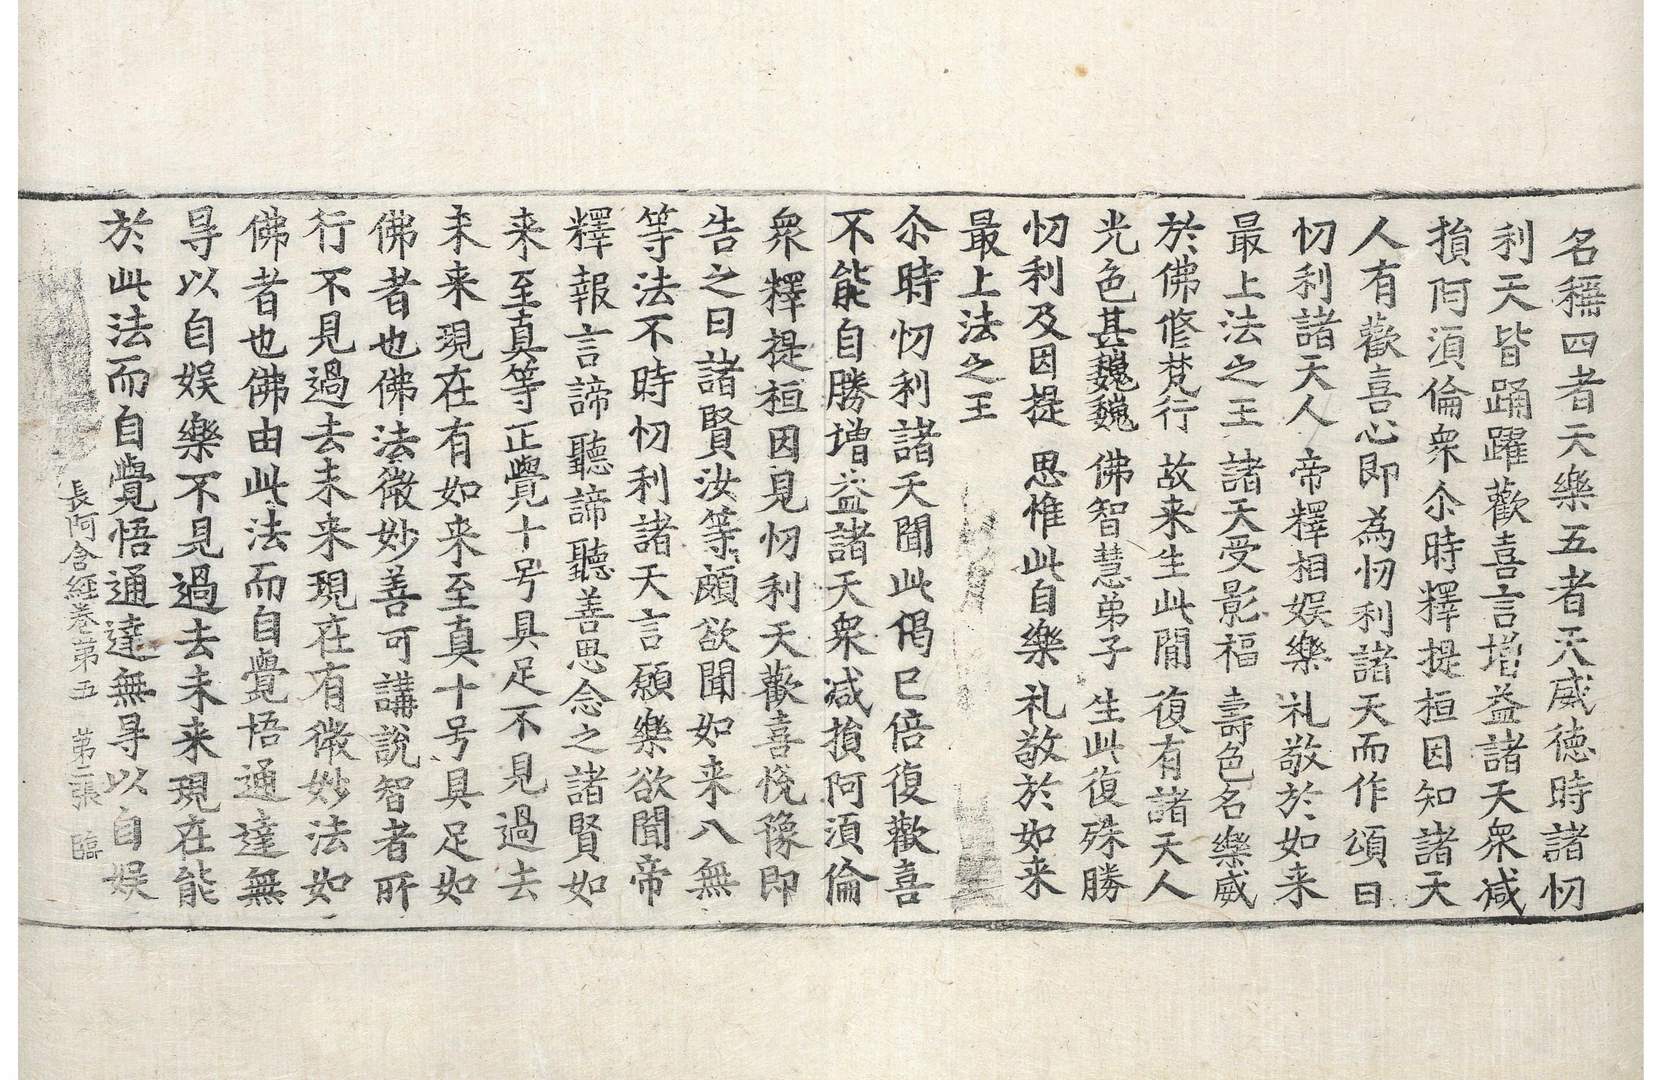 名稱四者天樂五者天威德時諸忉
利天皆踊躍歡喜言增益諸天衆减
損阿湏倫衆尒時釋提桓因知諸天
人有歡喜心即為忉利諸天而作頌曰
忉利諸天人 帝釋相娛樂 礼敬於如来
最上法之王 諸天受影福 壽色名樂威
於佛修梵行 故来生此閒 復有諸天人
光色甚巍巍 佛智慧弟子 生此復殊勝
忉利及因提 思惟此自樂 礼敬於如来
最上法之王
尒時忉利諸天聞此偈已倍復歡喜
不能自勝增益諸天衆减損阿湏倫
衆釋提桓因見忉利天歡喜悅豫即
告之曰諸賢汝等頗欲聞如来八無
等法不時忉利諸天言願樂欲聞帝
釋報言諦聽諦聽善思念之諸賢如
来至真等正覺十号具足不見過去
未来現在有如来至真十号具足如
佛者也佛法微妙善可講說智者所
行不見過去未来現在有微妙法如
佛者也佛由此法而自覺悟通達無
㝵以自娛樂不見過去未来現在能
於此法而自覺悟通達無㝵以自娛
長阿含經卷第五 第二張 臨